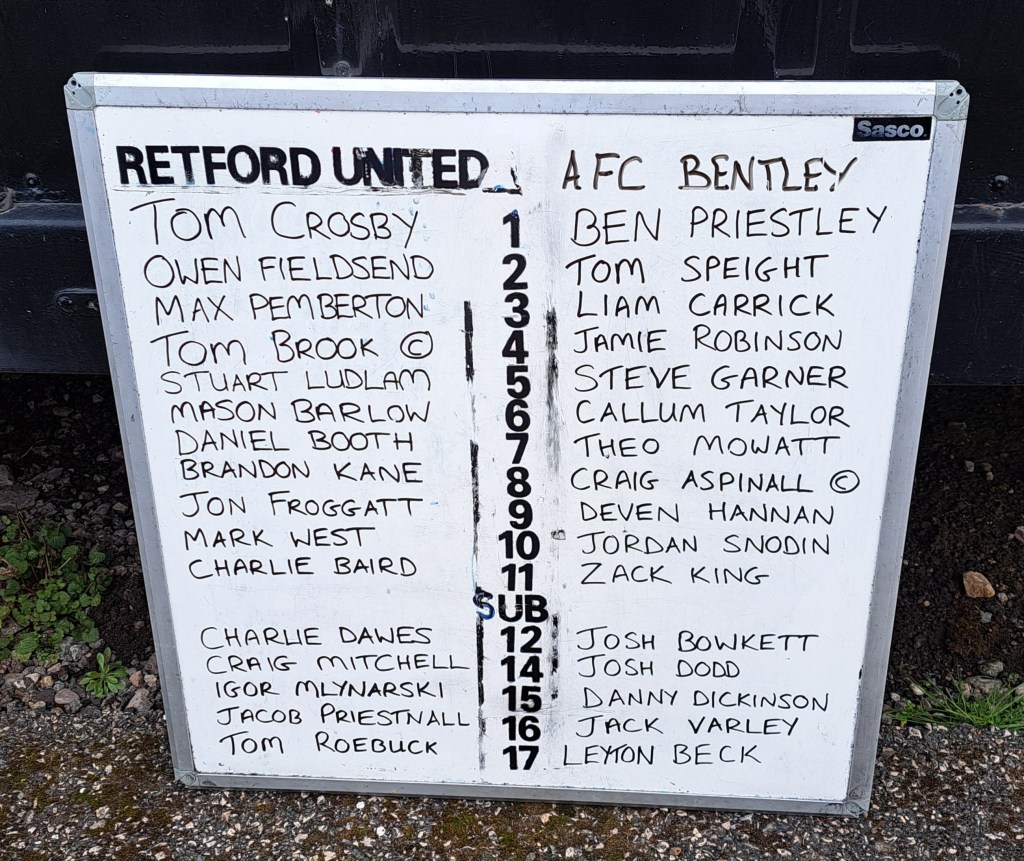 Sasco.
RETFORD UNITED AFC BENTLEY
TOM CROSBY 1 BEN PRIESTLEY
OWEN FIELDSEND 2 TOM SPEIGHT
MAX PEMBERTON 3 LIAM CARRICK
TOM BROOK © 4 JAMIE ROBINSON
STUART LUDLAM 5 STEVE GARNER
MASON BARLOW 6 CALLUM TAYLOR
DANIEL BOOTH 7 THEO MOWATT
BRANDON KANE 8 CRAIG ASPINALL ©
JON FROGGATT 9 DEVEN HANNAN
MARK WEST 10 JORDAN SNODIN
CHARLIE BAIRD 11 ZACK KING
SUB
CHARLIE DAWES 12 JOSH BOWKETT
CRAIG MITCHELL 14 JOSH DODD
IGOR MLYNARSKI 15 DANNY DICKINSON
JACOB PRIESTNALL 16 JACK VARLEY
TOM ROEBUCK 17 LEYTON BECK